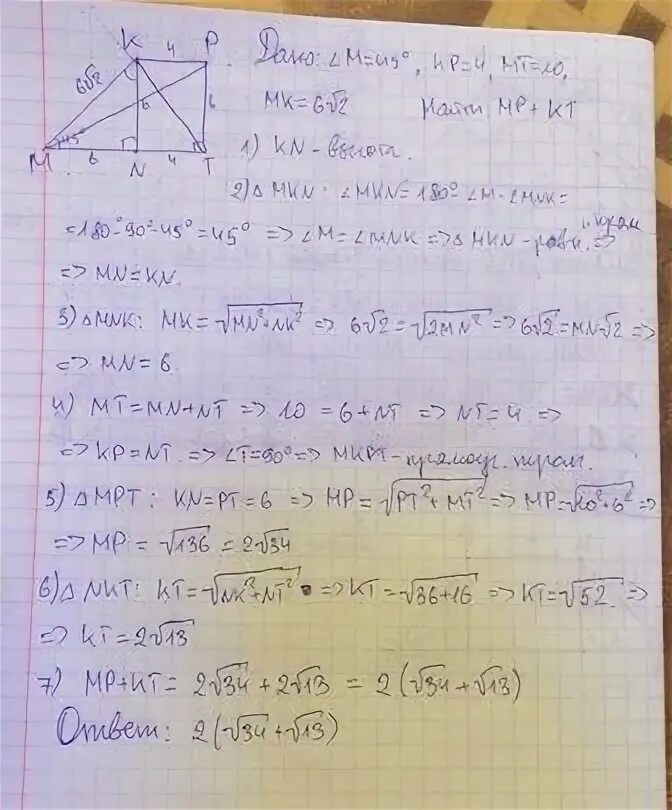 K 4 P
6√2
6 6
45°
M 6 N 4 T
Дано: ∠M=45°, KP=4, MT=10,
MK=6√2 Найти MP+KT
1) KN - высота.
2) △ MKN: ∠MKN=180°-∠M-∠MNK=
=180°-90°-45°=45° => ∠M=∠MNK => △ MKN - равн. =>
=> MN=KN.
3) △MNK: MK=√MN²+NK² => 6√2=√2MN² => 6√2=MN√2 =>
=> MN=6.
4) MT=MN+NT => 10=6+NT => NT=4 =>
=> KP=NT. => ∠T=90° => MKPT - прямоуг. трап.
5) △MPT: KN=PT=6 => MP=√PT²+MT² => MP=√10²+6² =>
=> MP=√136=2√34
6) △ NKT: KT=√NK²+NT² => KT=√36+16 => KT=√52. =>
=> KT=2√13
7) MP+KT=2√34+2√13=2(√34+√13)
Ответ: 2(√34+√13)